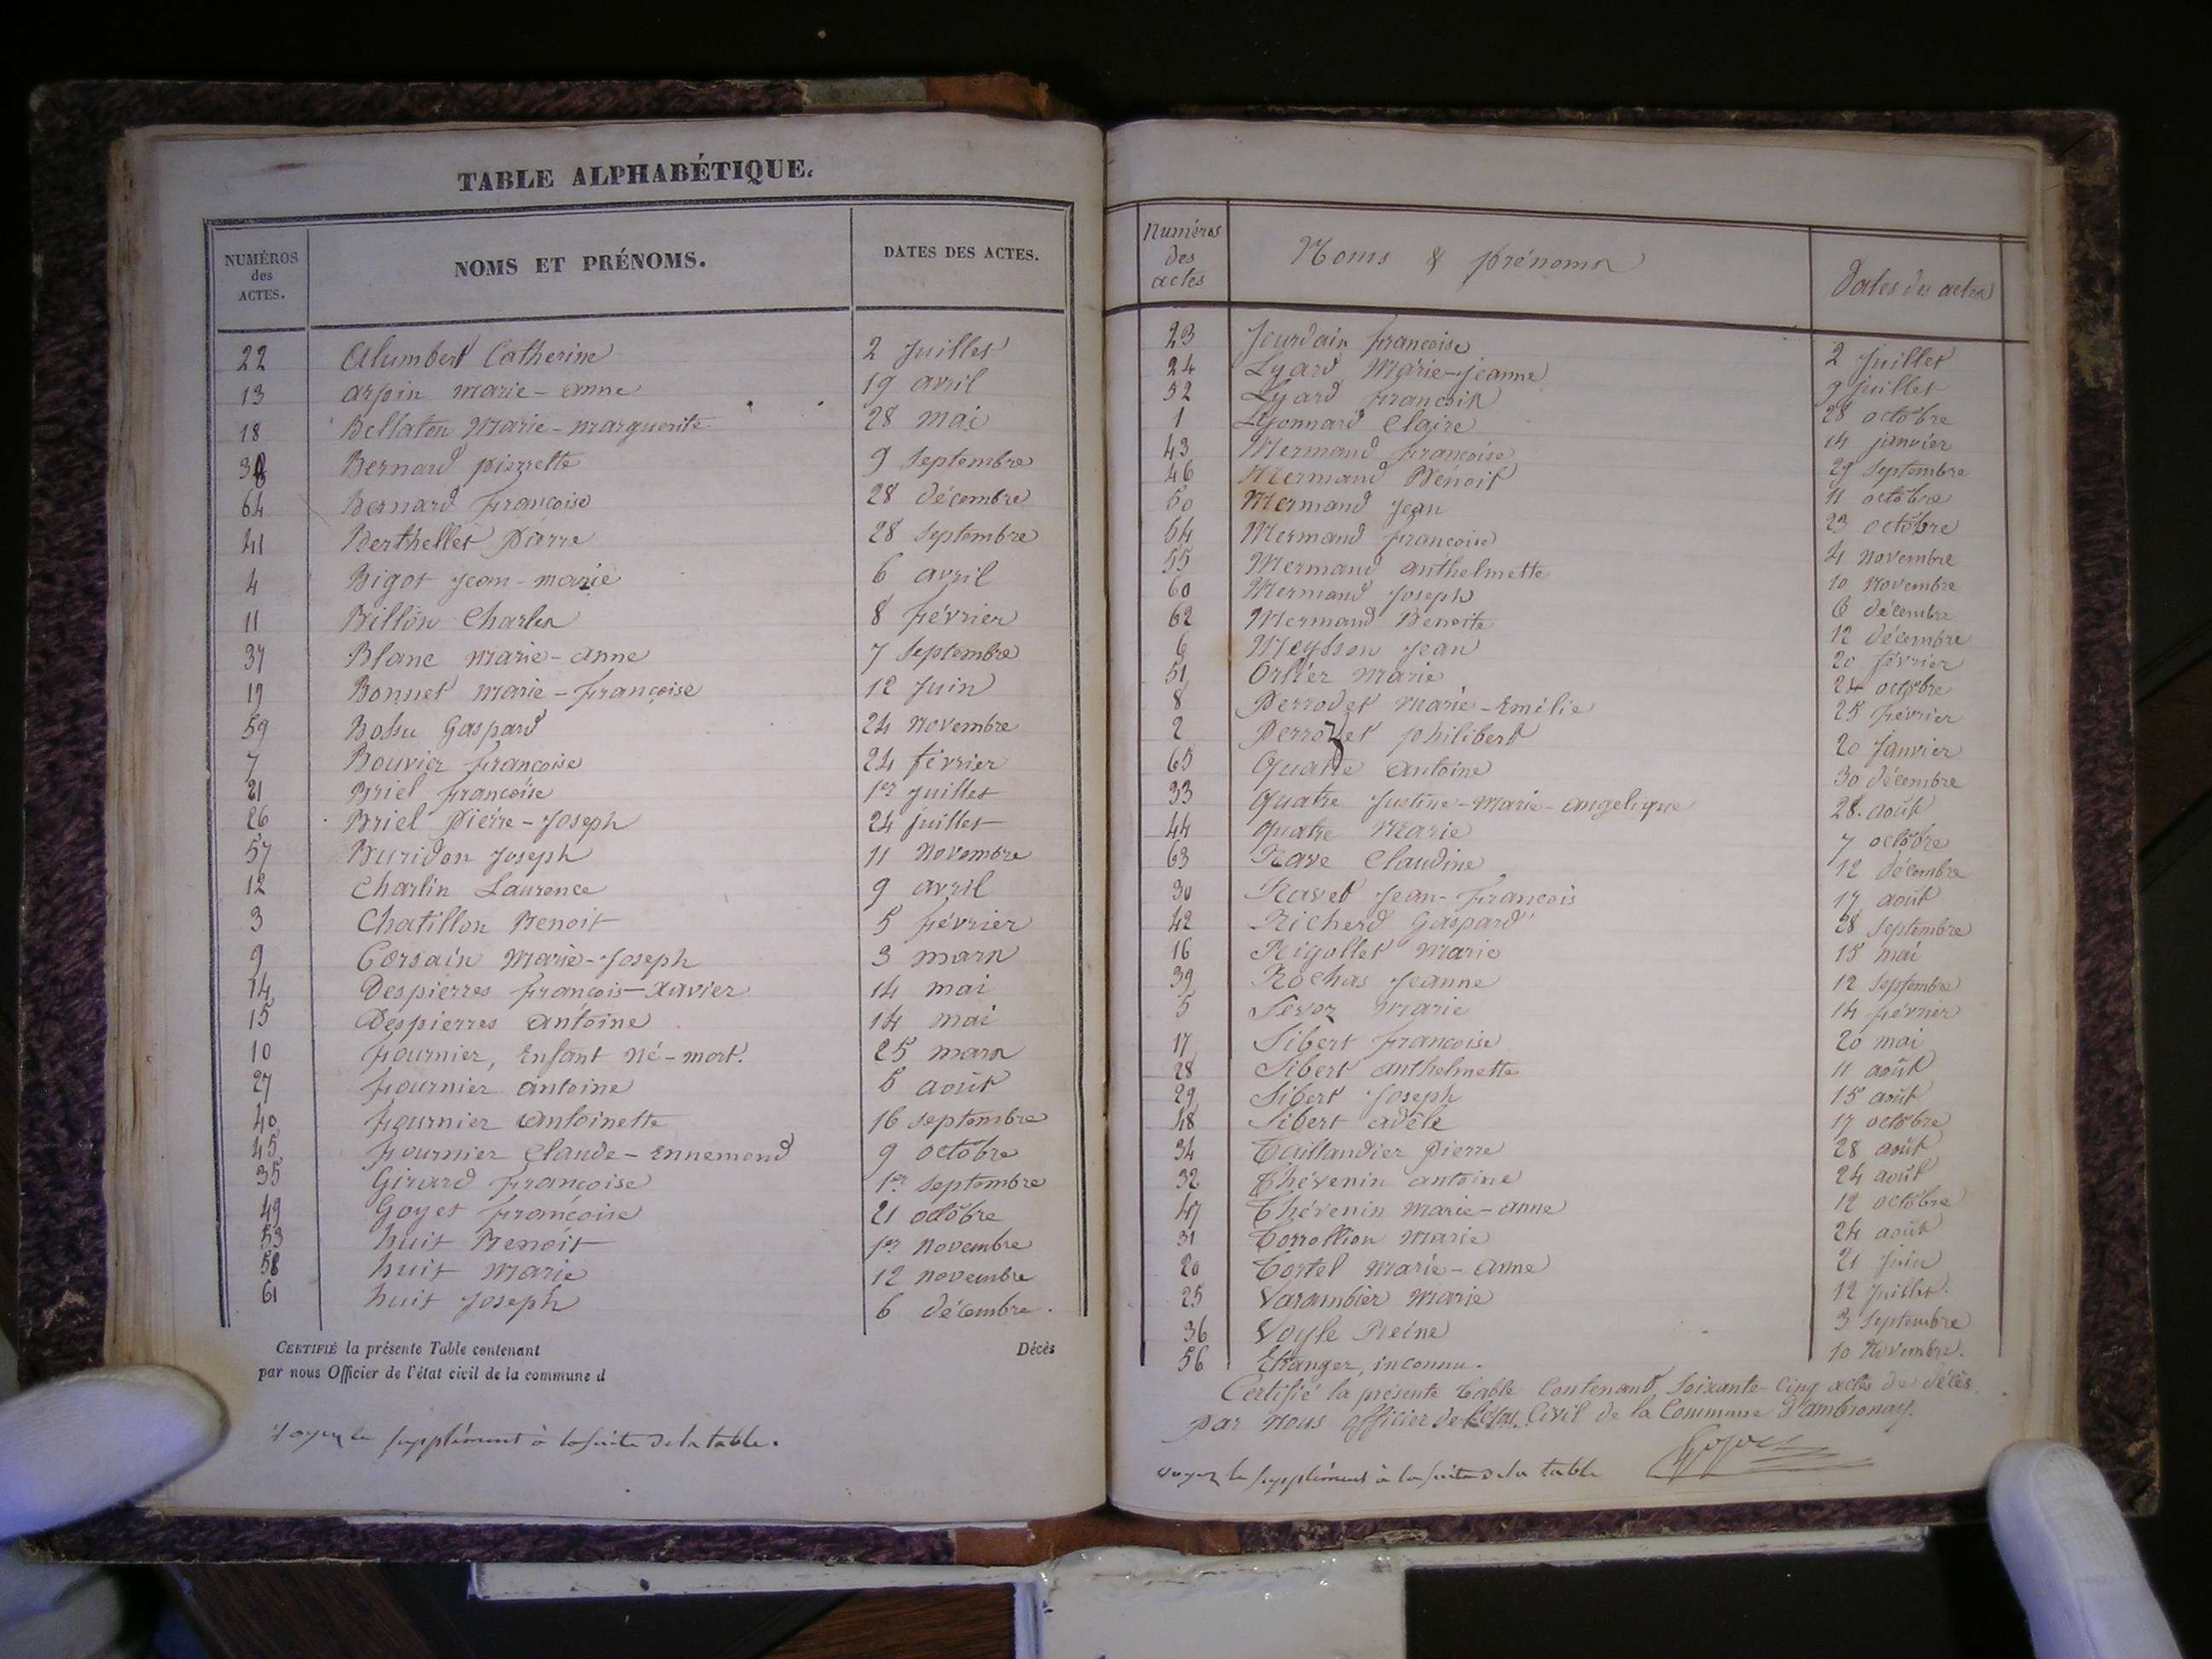 TABLE ALPHABÉTIQUE.
NUMÉROS des ACTES. NOMS ET PRÉNOMS. DATES DES ACTES.
22 Alumbert Catherine 2 Juillet
13 arpin marie-anne 19 avril
18 Bellaton Marie-marguerite 28 mai
38 Bernard pierrette 9 Septembre
64 Bernard Françoise 28 décembre
41 Berthellet Pierre 28 Septembre
4 Bigot Jean-marie 6 avril
11 Billon Charles 8 février
37 Blanc marie-anne 7 Septembre
19 Bonnet marie-françoise 12 Juin
59 Bossu Gaspard 24 novembre
7 Bouvier françoise 24 février
21 Briel françoise 1er Juillet
26 Briel Pierre-Joseph 24 juillet
57 Buridon Joseph 11 Novembre
12 Charlin Laurence 9 avril
3 Chatillon Benoit 5 février
9 Corsain Marie-Joseph 3 mars
14 Despierres françois-Xavier 14 mai
15 Despierres antoine 14 mai
10 fournier, Enfant né-mort. 25 mars
27 fournier antoine 5 août
40 fournier antoinette 16 septembre
45 fournier Claude-Ennemond 9 octobre
35 Girard françoise 1er Septembre
49 Goyet françoise 21 octobre
53 huit Benoit 1er novembre
58 huit Marie 12 novembre
61 huit Joseph 6 décembre.
CERTIFIÉ la présente Table contenant Décès
par nous Officier de l'état civil de la commune d
Voyez le supplément à la suite de la table.
Numéros des actes Noms & prénoms Dates des actes
23 Jourdain françoise 2 Juillet
24 Lyard Marie-jeanne 9 Juillet
52 Lyard françois 28 octobre
1 Lyonnard Claire 14 janvier
43 Mermand françoise 29 Septembre
46 Mermand Bénoit 11 octobre
50 Mermand Jean 23 octobre
54 Mermand françoise 4 novembre
55 Mermand anthelmette 10 novembre
60 Mermand Joseph 6 décembre
62 Mermand Benoite 12 décembre
6 Meysson Jean 20 février
51 Orsier Marie 24 octobre
8 Perrodet Marie-Emélie 25 février
2 Perrozet philibert 20 Janvier
65 Quatre antoine 30 décembre
33 quatre Justine-Marie-angelique 28. août
44 quatre Marie 7 octobre
63 Rave Claudine 12 décembre
30 Ravet Jean-françois 17 août
42 Richerd Gaspard 28 Septembre
16 Rigollet Marie 15 mai
39 Rochas Jeanne 12 Septembre
5 Sevoz Marie 14 février
17 Sibert françoise 20 mai
28 Sibert anthelmette 11 août
29 Sibert Joseph 15 août
48 Sibert adèle 17 octobre
34 Taillandier Pierre 28 août
32 Thévenin antoine 24 août
47 Thévenin Marie-anne 12 octobre
31 Torrollion Marie 24 août
20 Tortel Marie-anne 21 Juin
25 Varambier Marie 12 Juillet.
36 Voyle Reine 3 Septembre
56 Etranger, inconnu. 10 Novembre.
Certifié la présente Table Contenant Soixante-Cinq actes de décès
par Nous officier de l'état Civil de la Commune d'ambronay.
Voyez le supplément à la suite de la table